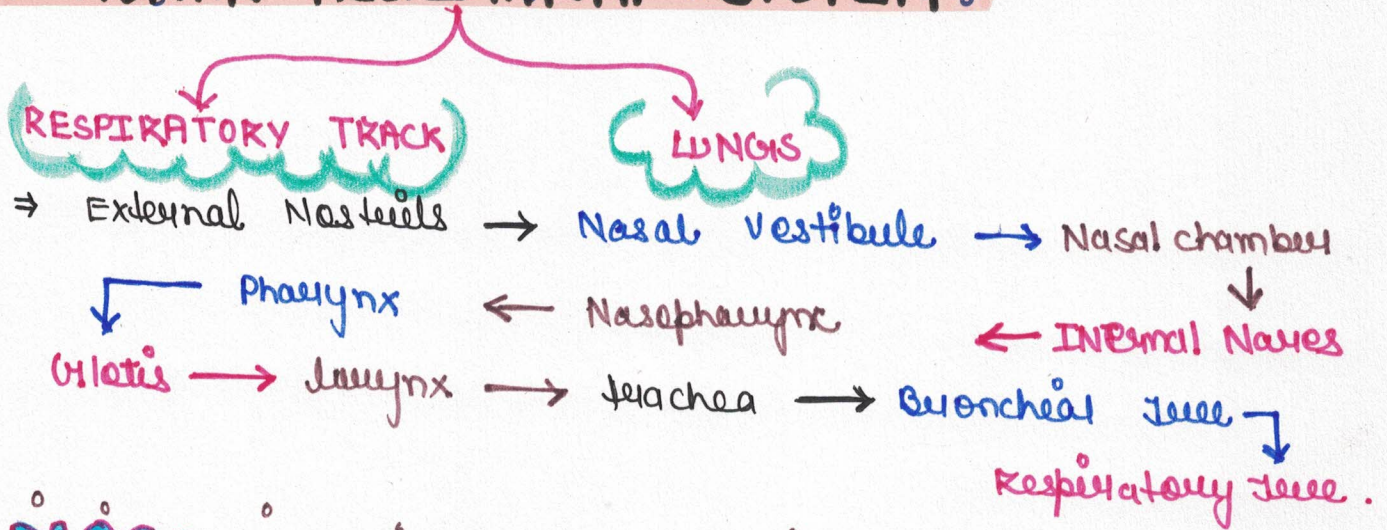 RESPIRATORY TRACK LUNGS
⇒ External Nostrils → Nasal Vestibule → Nasal chamber
Pharynx ← Nasopharynx ← INternal Nares
Glotis → larynx → trachea → Broncheal Tree
Respiratory Tree.